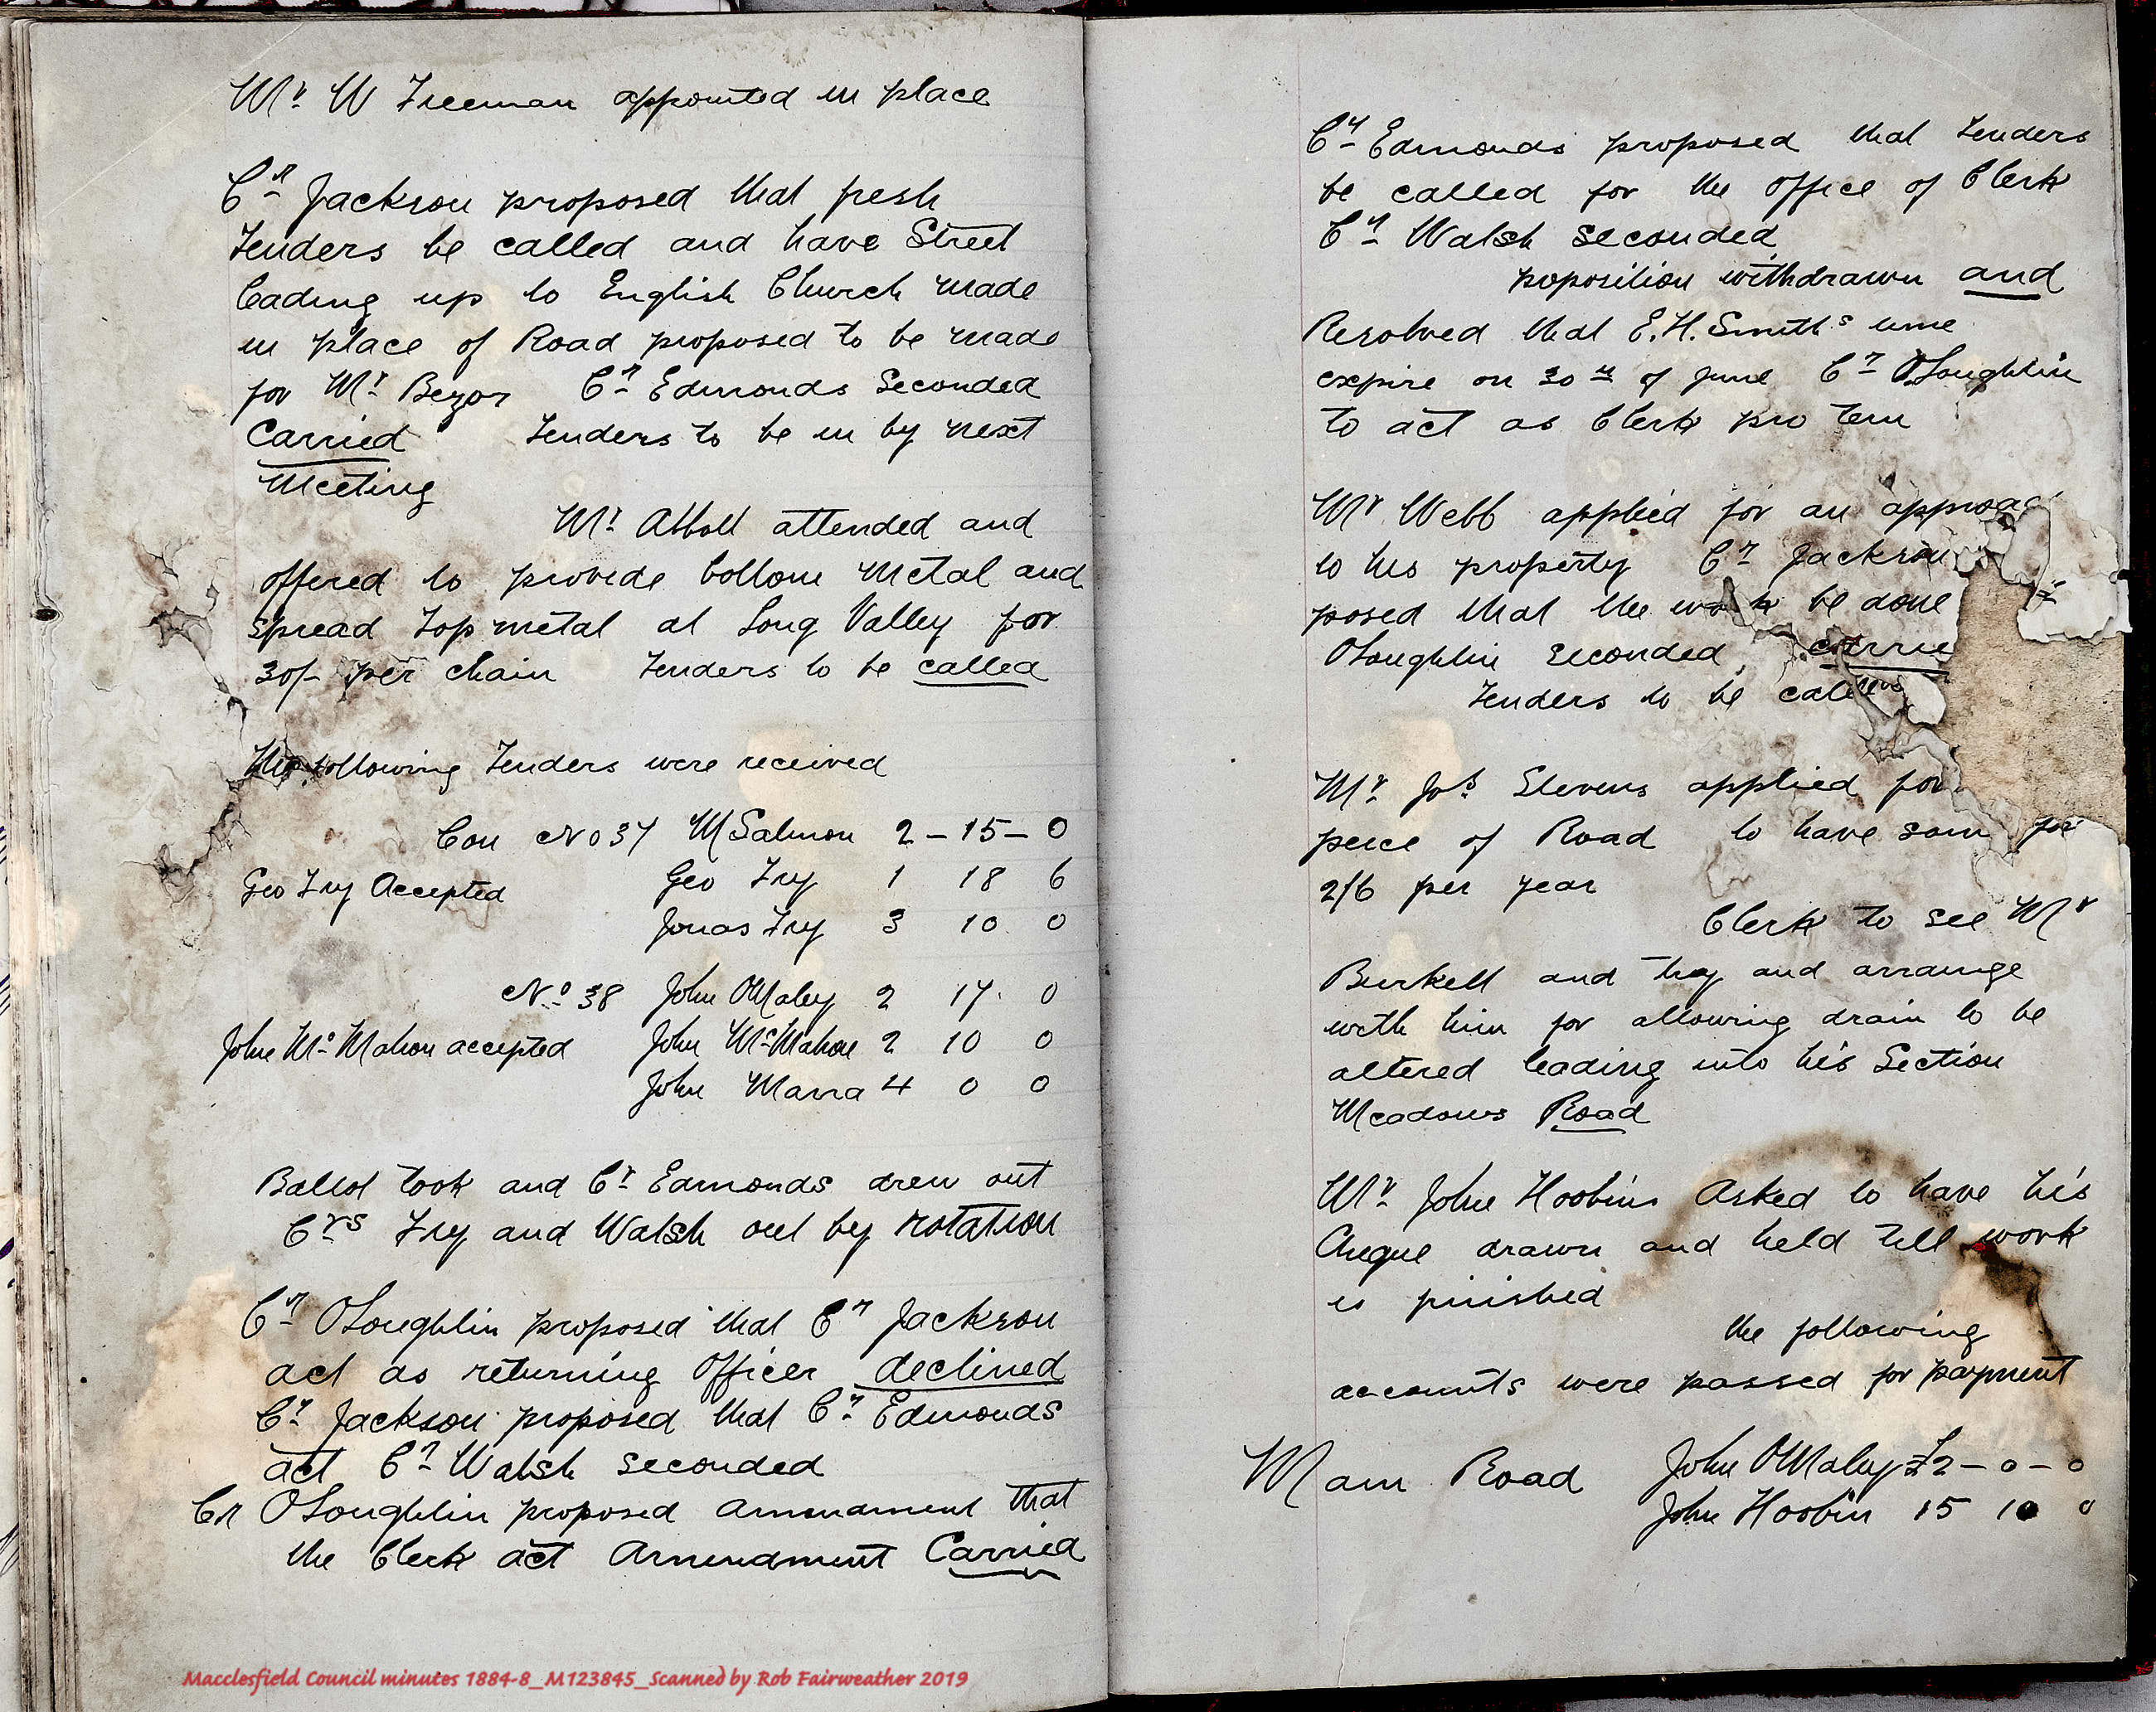 Mr W Freeman appointed in place
Cr Jackson proposed that fresh
Tenders be called and have Street
leading up to English Church made
in place of Road proposed to be made
for Mr Bezor Cr Edmonds Seconded
Carried Tenders to be in by next
Meeting
Mr Abbott attended and
offered to provide bottom Metal and
Spread Top metal at Long Valley for
30/- per chain Tenders to be called
The following Tenders were received
Con No 37 M Salmon 2 - 15 - 0
Geo Fry Accepted Geo Fry 1 18 6
Jonas Fry 3 10 0
No 38 John OMaley 2 17 0
John McMahon accepted John McMahon 2 10 0
John Marra 4 0 0
Ballot took and Cr Edmonds drew out
Crs Fry and Walsh out by rotation
Cr OLoughlin proposed that Cr Jackson
act as returning Officer declined
Cr Jackson proposed that Cr Edmonds
act Cr Walsh seconded
Cr OLoughlin proposed amendment that
the Clerk act Amendment Carried
Cr Edmonds proposed that Tenders
be called for the office of Clerk
Cr Walsh seconded
proposition withdrawn and
Resolved that E.H. Smiths time
expire on 30th of June Cr OLoughlin
to act as Clerk pro tem
Mr Webb applied for an approac
to his property Cr Jackson
posed that the work be done
OLoughlin seconded carrie
Tenders to be called
Mr Jos Stevens applied for
peice of Road to have sam for
2/6 per year
Clerk to see Mr
Burkell and Try and arrange
with him for allowing drain to be
altered leading into his Section
Meadows Road
Mr John Hoobins Asked to have his
Cheque drawn and held till work
is finished
the following
accounts were passed for payment
Main Road John OMaley £2 - 0 - 0
John Hoobin 15 10 0
Macclesfield Council minutes 1884-8_M123845_Scanned by Rob Fairweather 2019